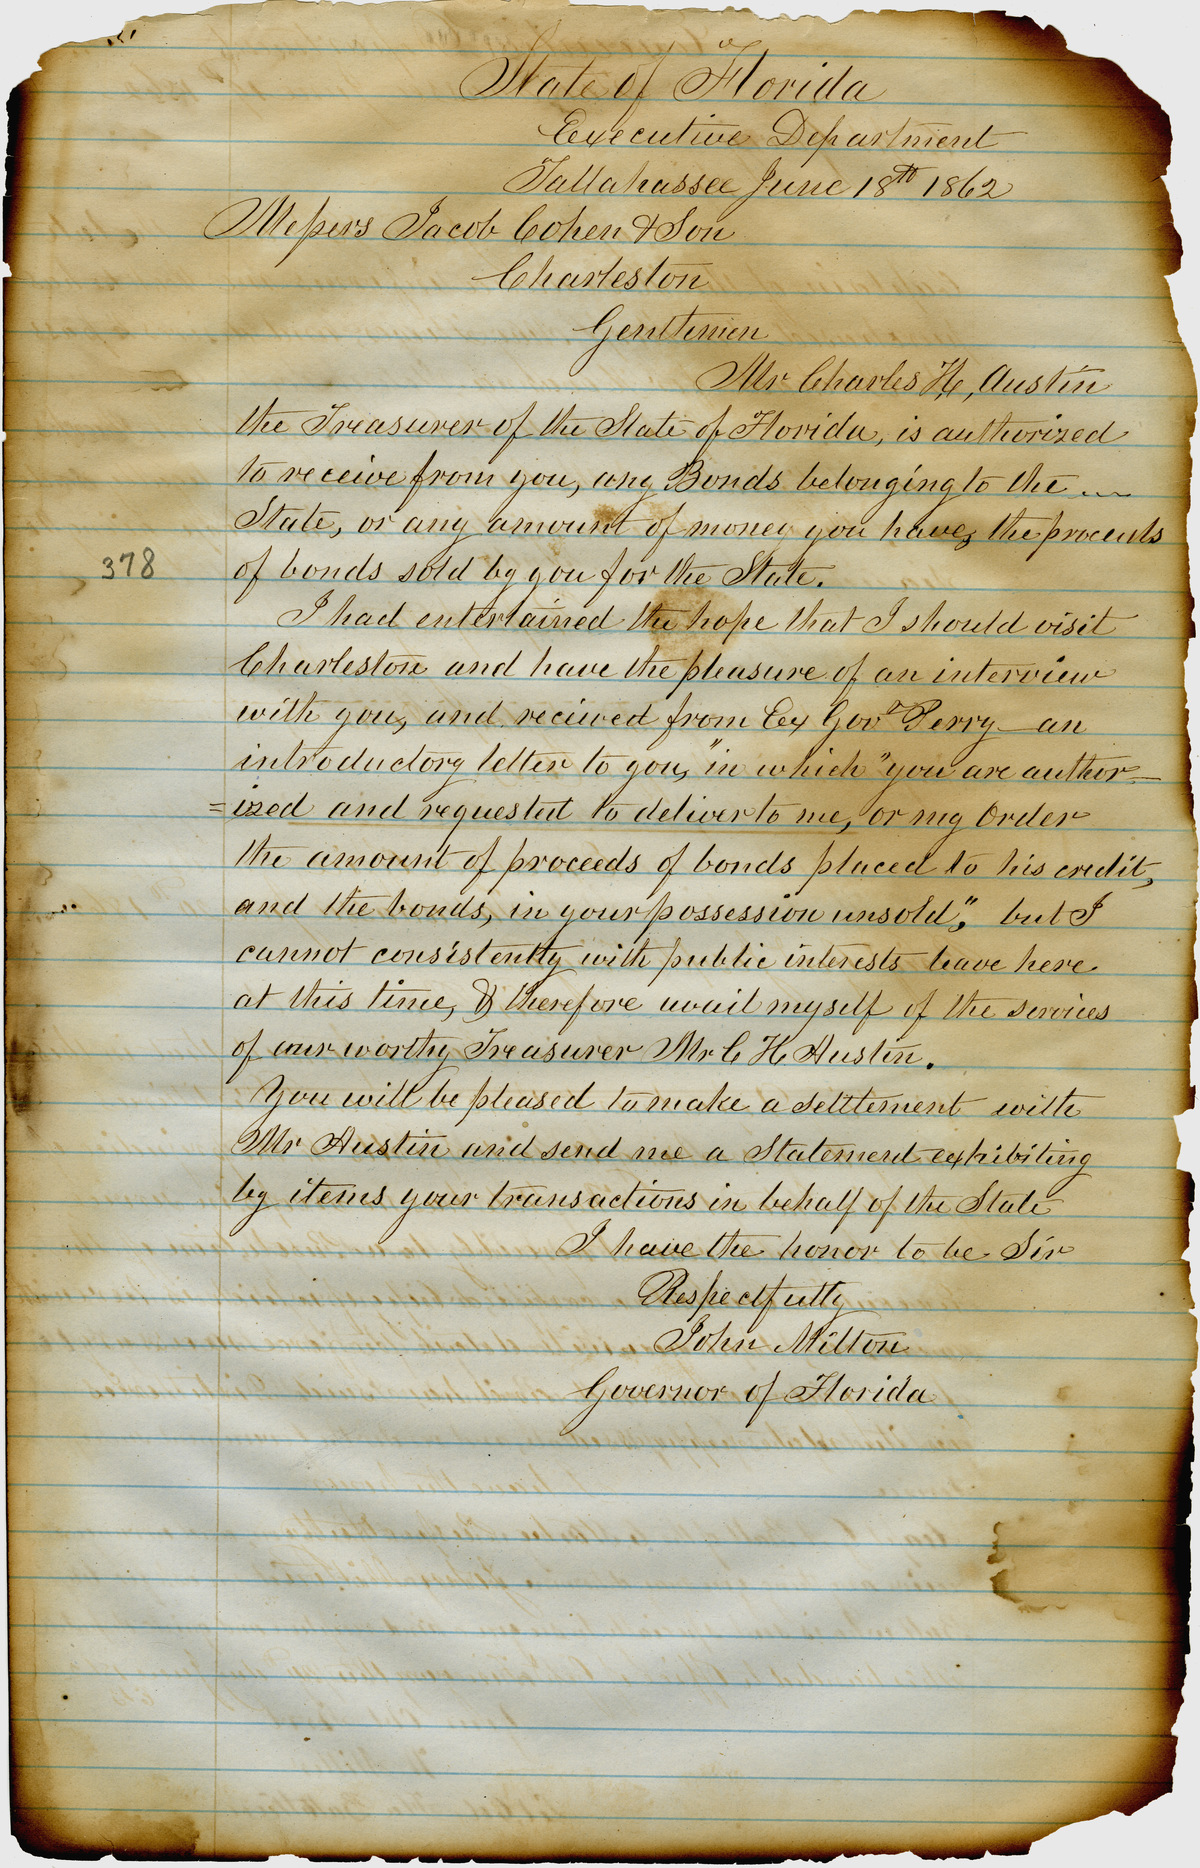 State of Florida
Executive Department
Tallahassee June 18th 1862
Messers Jacob Cohen & Son
Charleston
Gentlemen
Mr Charles H, Austin
the Treasurer of the State of Florida, is authorized
to receive from you, any Bonds belonging to the
State, or any amount of money you have, the proceeds
378
of bonds sold by you for the State.
I had entertained the hope that I should visit
Charleston and have the pleasure of an interview
with you, and recieved from Ex Govr Perry - an
introductory letter to you, "in which "you are author-
=ized and requested to deliver to me, or my Order
the amount of proceeds of bonds placed to his credit,
and the bonds, in your possession unsold", but I
cannot consistently with public interests leave here
at this time, & therefore avail myself of the services
of our worthy Treasurer Mr C H Austin.
You will be pleased to make a settlement with
Mr Austin and send me a Statement exhibiting
by items your transactions in behalf of the State
I have the honor to be Sir
Respectfully
John Milton
Governor of Florida